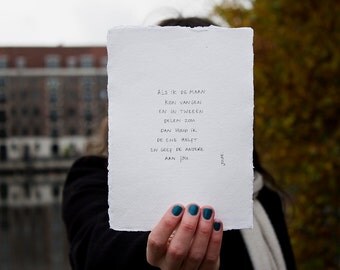 ALS IK DE MAAN
KON VANGEN
EN IN TWEEËN
DELEN ZOU
DAN HOUD IK
DE ENE HELFT
EN GEEF DE ANDERE
AAN JOU